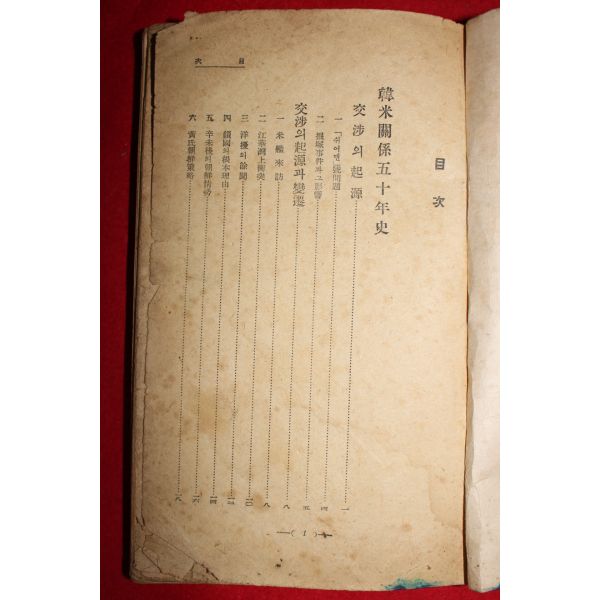 目次
韓米關係五十年史
交涉의起源 一
一 「쉬어맨」號問題 四
二 掘塚事件과그影響 五
交涉의起源과變遷 八
一 米艦來訪 八
二 江華洞上衝突 八
三 洋擾의餘聞 一〇
四 鎖國의根本理由
五 辛未後의朝鮮情勢 一四
六 黃氏朝鮮策略 一八
目次
—( 1 )—